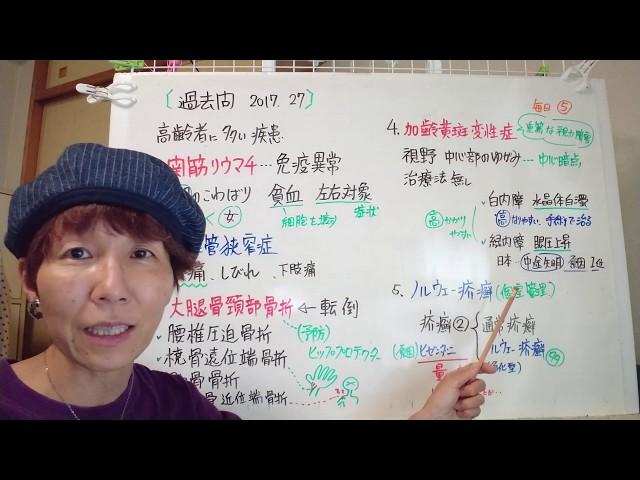 〔過去問 2017. 27〕
高齢者に多い疾患
関節リウマチ…免疫異常
こわばり 貧血 左右対象
く 女 症状
管狭窄症
痛、しびれ、下肢痛
大腿骨頸部骨折 ← 転倒
・腰椎圧迫骨折 (予防)
・橈骨遠位端骨折 ヒッププロテクター
骨骨折
近位端骨折
毎日⑤
4. 加齢黄斑変性症
視野 中心部のゆがみ…中心暗点
治療法無し
白内障 水晶体白濁
高 なりやすい、手術で治る
高 かかりやすい
緑内障 眼圧上昇
日本…中途失明 原因 1位
5. ノルウェー疥癬 (個室管理)
疥癬② 通常疥癬
ノルウェー疥癬
(原因) ヒゼンダニ
量
化型)